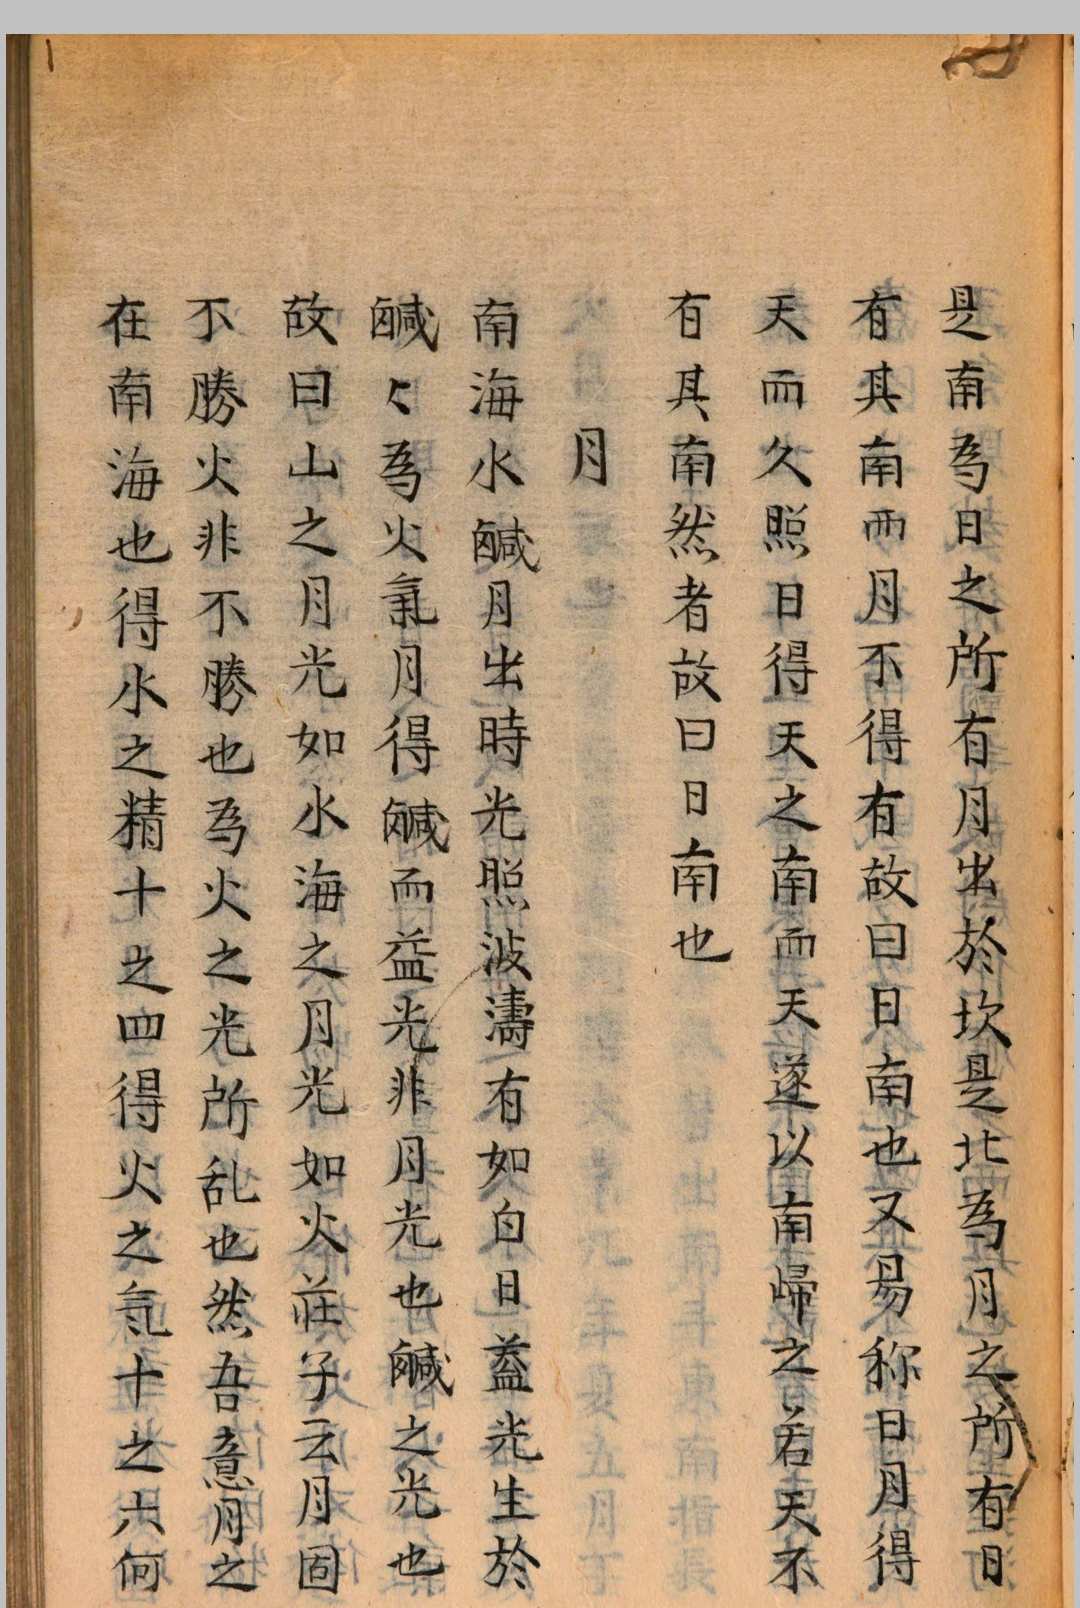 是南為日之所有月出於坎是北為月之所有日
有其南而月不得有故曰日南也又易称日月得
天而久照日得天之南而天遂以南歸之若天不
有其南然者故曰日南也
月
南海水鹹月出時光照波濤有如白日葢光生於
鹹〻為火氣月得鹹而益光非月光也鹹之光也
故曰山之月光如水海之月光如火莊子云月固
不勝火非不勝也為火之光所乱也然吾意月之
在南海也得水之精十之四得火之氣十之六何